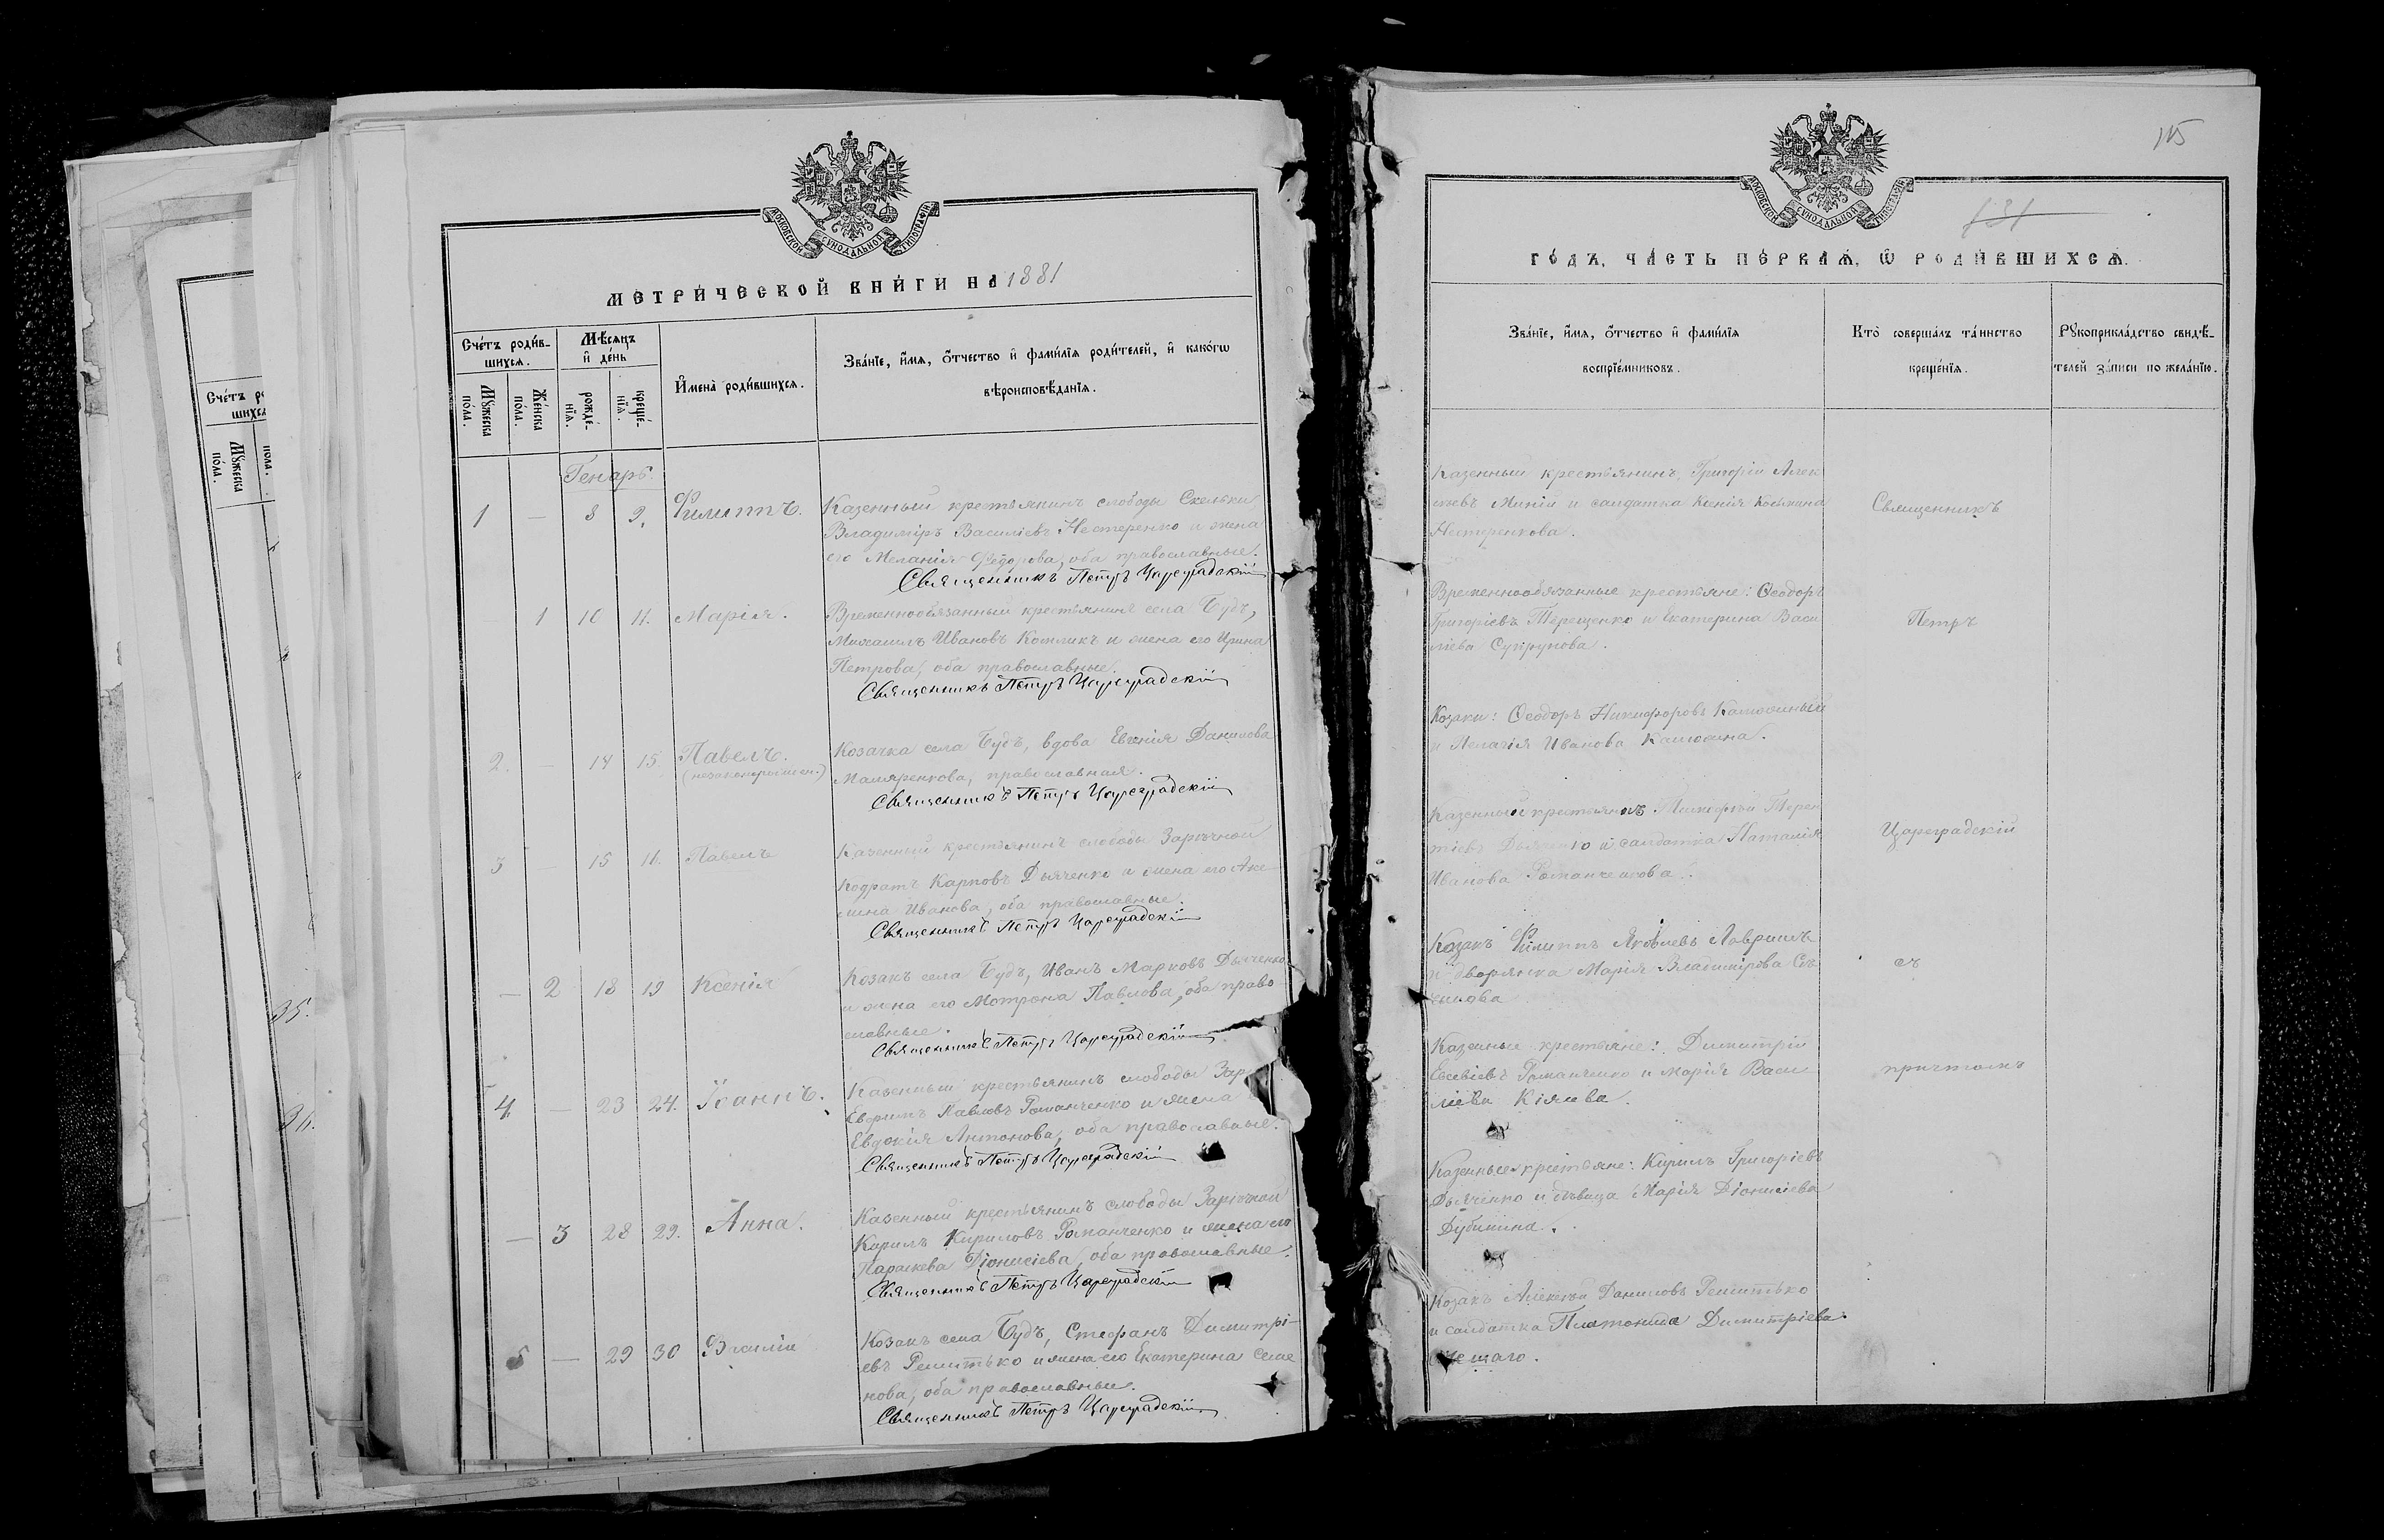 МОСКОВСКОЙ СѴНОДАЛЬНОЙ ТИПОГРАФІИ
МЕТРИ́ЧЕСКОЙ КНИ́ГИ НА 1881
Сче́тъ роди́в-
шихся.
Мѣ́сяцъ
и҆ де́нь
Мꙋ́жеска
по́ла.
Же́нска
по́ла.
рожде́-
нїя.
креще́-
нїя.
И҆мена̀ роди́вшихся.
Зва́нїе, и҆́мя, ѻ҆́тчество и҆ фами́лїя роди́телей, и҆ како́гѡ
вѣроисповѣ́данїя.
Генварь.
1 — 8 9. Филиппъ. Казенный крестьянинъ слободы Скельки
Владиміръ Василіевъ Нестеренко и жена
его Меланія Ѳеодорова, оба православные.
Священникъ Петръ Цареградскій
1 10 11. Марія. Временнообязанный крестьянинъ села Будъ,
Михаилъ Ивановъ Котликъ и жена его Ирина
Петрова, оба православные.
Священникъ Петръ Цареградскій
2. — 14 15. Павелъ. Козачка села Будъ, вдова Евгенія Данилова
(незаконорожден.) Маляренкова, православная.
Священникъ Петръ Цареградскій
3 — 15 16. Павелъ Казенный крестьянинъ слободы Зарѣчной
Кодратъ Карповъ Дьяченко и жена его Аке-
сина Иванова, оба православные.
Священникъ Петръ Цареградскій
— 2 18 19 Ксенія Козакъ села Будъ, Иванъ Марковъ Дьяченко
и жена его Мотрона Павлова, оба право-
славные.
Священникъ Петръ Цареградскій
4 — 23 24. Іоаннъ. Казенный крестьянинъ слободы Зар
Ефримъ Павловъ Романченко и жена
Евдокія Антонова, оба православные.
Священникъ Петръ Цареградскій
— 3 28 29. Анна. Казенный крестьянинъ слободы Зарѣчной
Кирилъ Кириловъ Романченко и жена его
Параскева Діонисіева, оба православные.
Священникъ Петръ Цареградскій
5 — 29 30 Василій Козакъ села Будъ, Стефанъ Димитрі-
евъ Решитько и жена его Екатерина Семе
нова, оба православные.
Священникъ Петръ Цареградскій
115
МОСКОВСКОЙ СѴНОДАЛЬНОЙ ТИПОГРАФІИ
ГО́ДЪ, ЧА́СТЬ ПЕ́РВАЯ, Ѡ҆ РОДИ́ВШИХСЯ.
Зва́нїе, и҆́мя, ѻ҆́тчество и҆ фами́лїя
воспрїе́мниковъ.
Кто̀ соверша́лъ та́инство
креще́нїя.
Рꙋкоприкла́дство свидѣ́-
телей за́писи по жела́нїю.
Казенный крестьянинъ, Григорій Алек
сѣевъ Миній и салдатка Ксенія Козмина
Нестеренкова.
Священникъ
Временнообязанные крестьяне: Ѳеодоръ
Григоріевъ Терещенко и Екатерина Васи
ліева Супрунова.
Петръ
Козаки: Ѳеодоръ Никифоровъ Калюжный
и Пелагія Иванова Калюжна.
Казенный крестьянинъ Тимофей Терен
тіевъ Дьяченко и салдатка Наталія
Иванова Романченкова.
Цареградскій
Козакъ Филиппъ Яковлевъ Лавринъ
и дворянка Марія Владимірова Съ
съ
Казенные крестьяне: Димитрій
Евсевіевъ Романченко и Марія Васи
ліева Кіяева.
причтомъ
Казенные крестьяне: Кирилъ Григоріевъ
Дьяченко и дѣвица Марія Діонисіева
Дубинина.
Козакъ Алексѣй Даниловъ Решитько
и салдатка Платонида Димитріева
Сче́тъ ро
шихся
Мꙋ́жеска
по́ла.
пола.
35.
36.